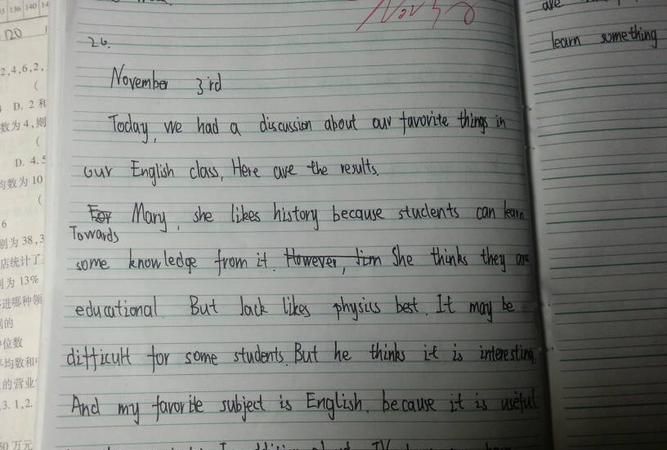 120
2,4,6,2,
D. 2和
数为4,则
D. 4.5
均数为10
6
别为38,3
店统计了
别为13%
进哪种领
的
位数
平均数和
的营业
3. 1,2.
50万元
26.
November 3rd
Today, we had a discussion about our favorite things in
our English class, Here are the results.
For Mary, she likes history because students can learn
Towards
some knowledge from it. However, Jim She thinks they are
educational. But Jack likes physics best. It may be
difficult for some students. But he thinks it is interesting.
And my favorite subject is English. because it is useful
are
learn something